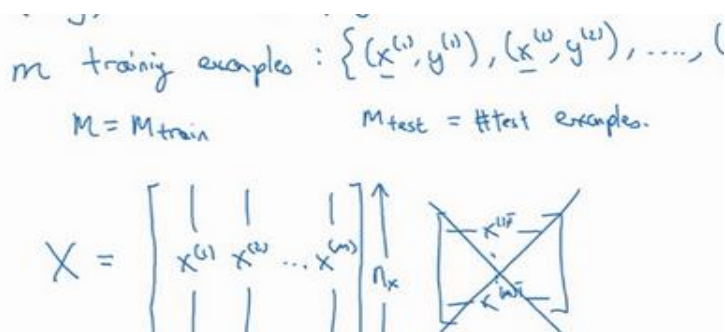 m trainig examples : {(x^(1), y^(1)), (x^(2), y^(2)), ...., (
M = M train M test = #test examples.
X = [ x^(1) x^(2) ... x^(m) ] n_x [ x^(1)T
x^(m)T ]